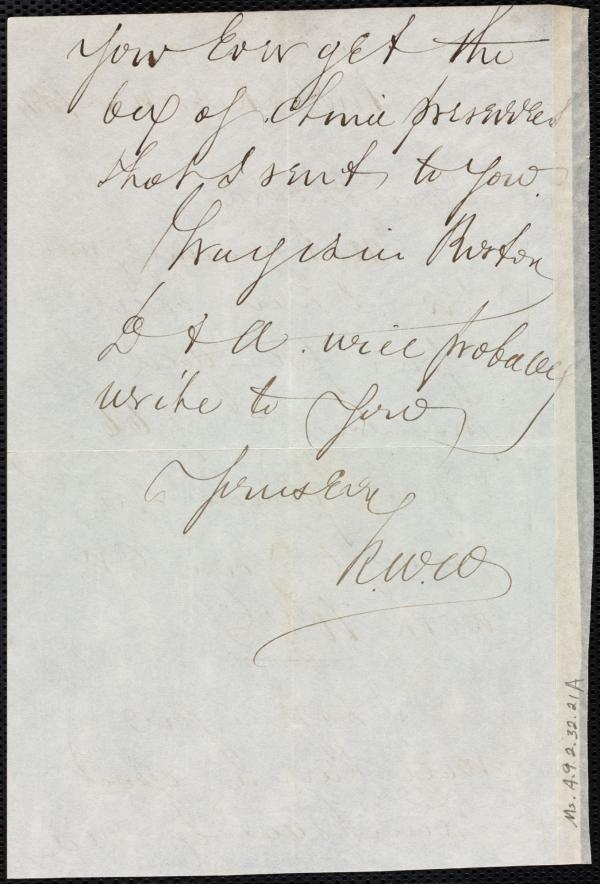 You ever get the
box of China preserves
that I sent to you.
in Boston
D & A. will probably
write to you
Yours Ever
R.W.W
Ms. A.9.2.32.21A